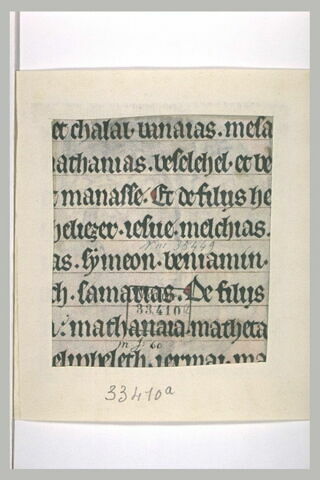 et chalal. banaias. mesa
athanias. beselehel. et be
manasse. Et de filijs he
heliezer. iesue. melchias.
N III 35449
as. symeon. beniamin.
ch. samarias. De filijs
33410a
mathanaia. matheta
elipheleth. iermai. ma
33410a